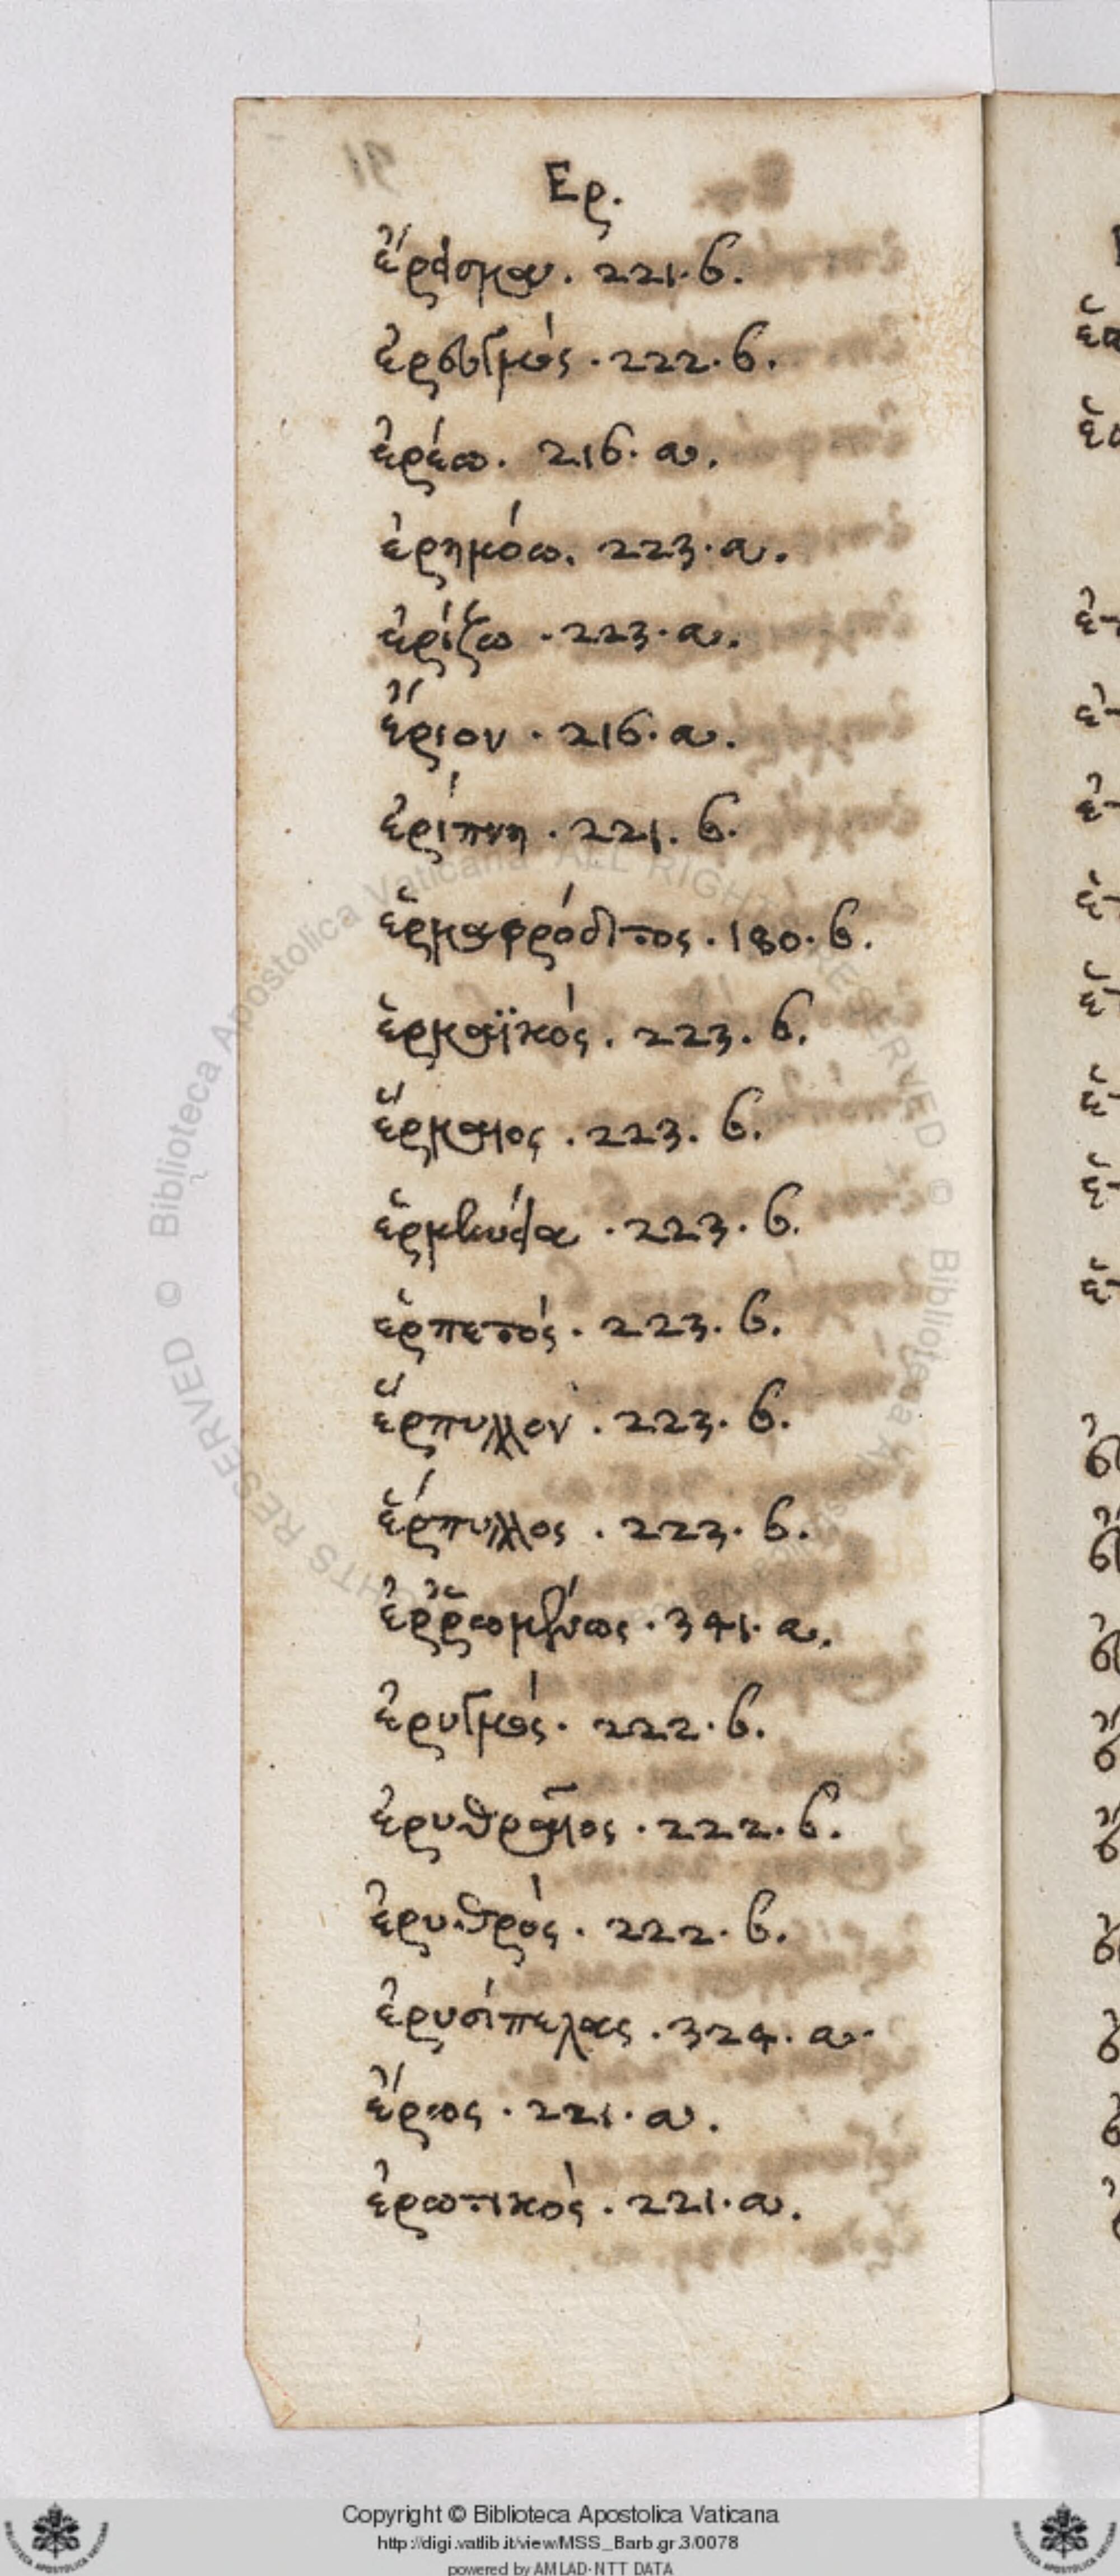 Ερ.
221. b.
ἐρευγμός. 222. b.
ἐρέω. 216. a.
ἐρημόω. 223. a.
ἐρίζω. 223. a.
ἔριον. 216. a.
ἐρίπνη. 221. b.
ἑρμαφρόδιτος. 180. b.
ἑρμαϊκός. 223. b.
ἕρμαιος. 223. b.
ἑρμηνεία. 223. b.
ἑρπετός. 223. b.
ἕρπυλλον. 223. b.
ἕρπυλλος. 223. b.
ἐῤῥωμένως. 341. a.
ἐρυγμός. 222. b.
ἐρυθραῖος. 222. b.
ἐρυθρός. 222. b.
ἐρυσίπελας. 324. a.
ἔρως. 221. a.
ἐρωτικός. 221. a.
Copyright © Biblioteca Apostolica Vaticana
http://digi.vatlib.it/view/MSS_Barb.gr.3/0078
powered by AMLAD-NTT DATA